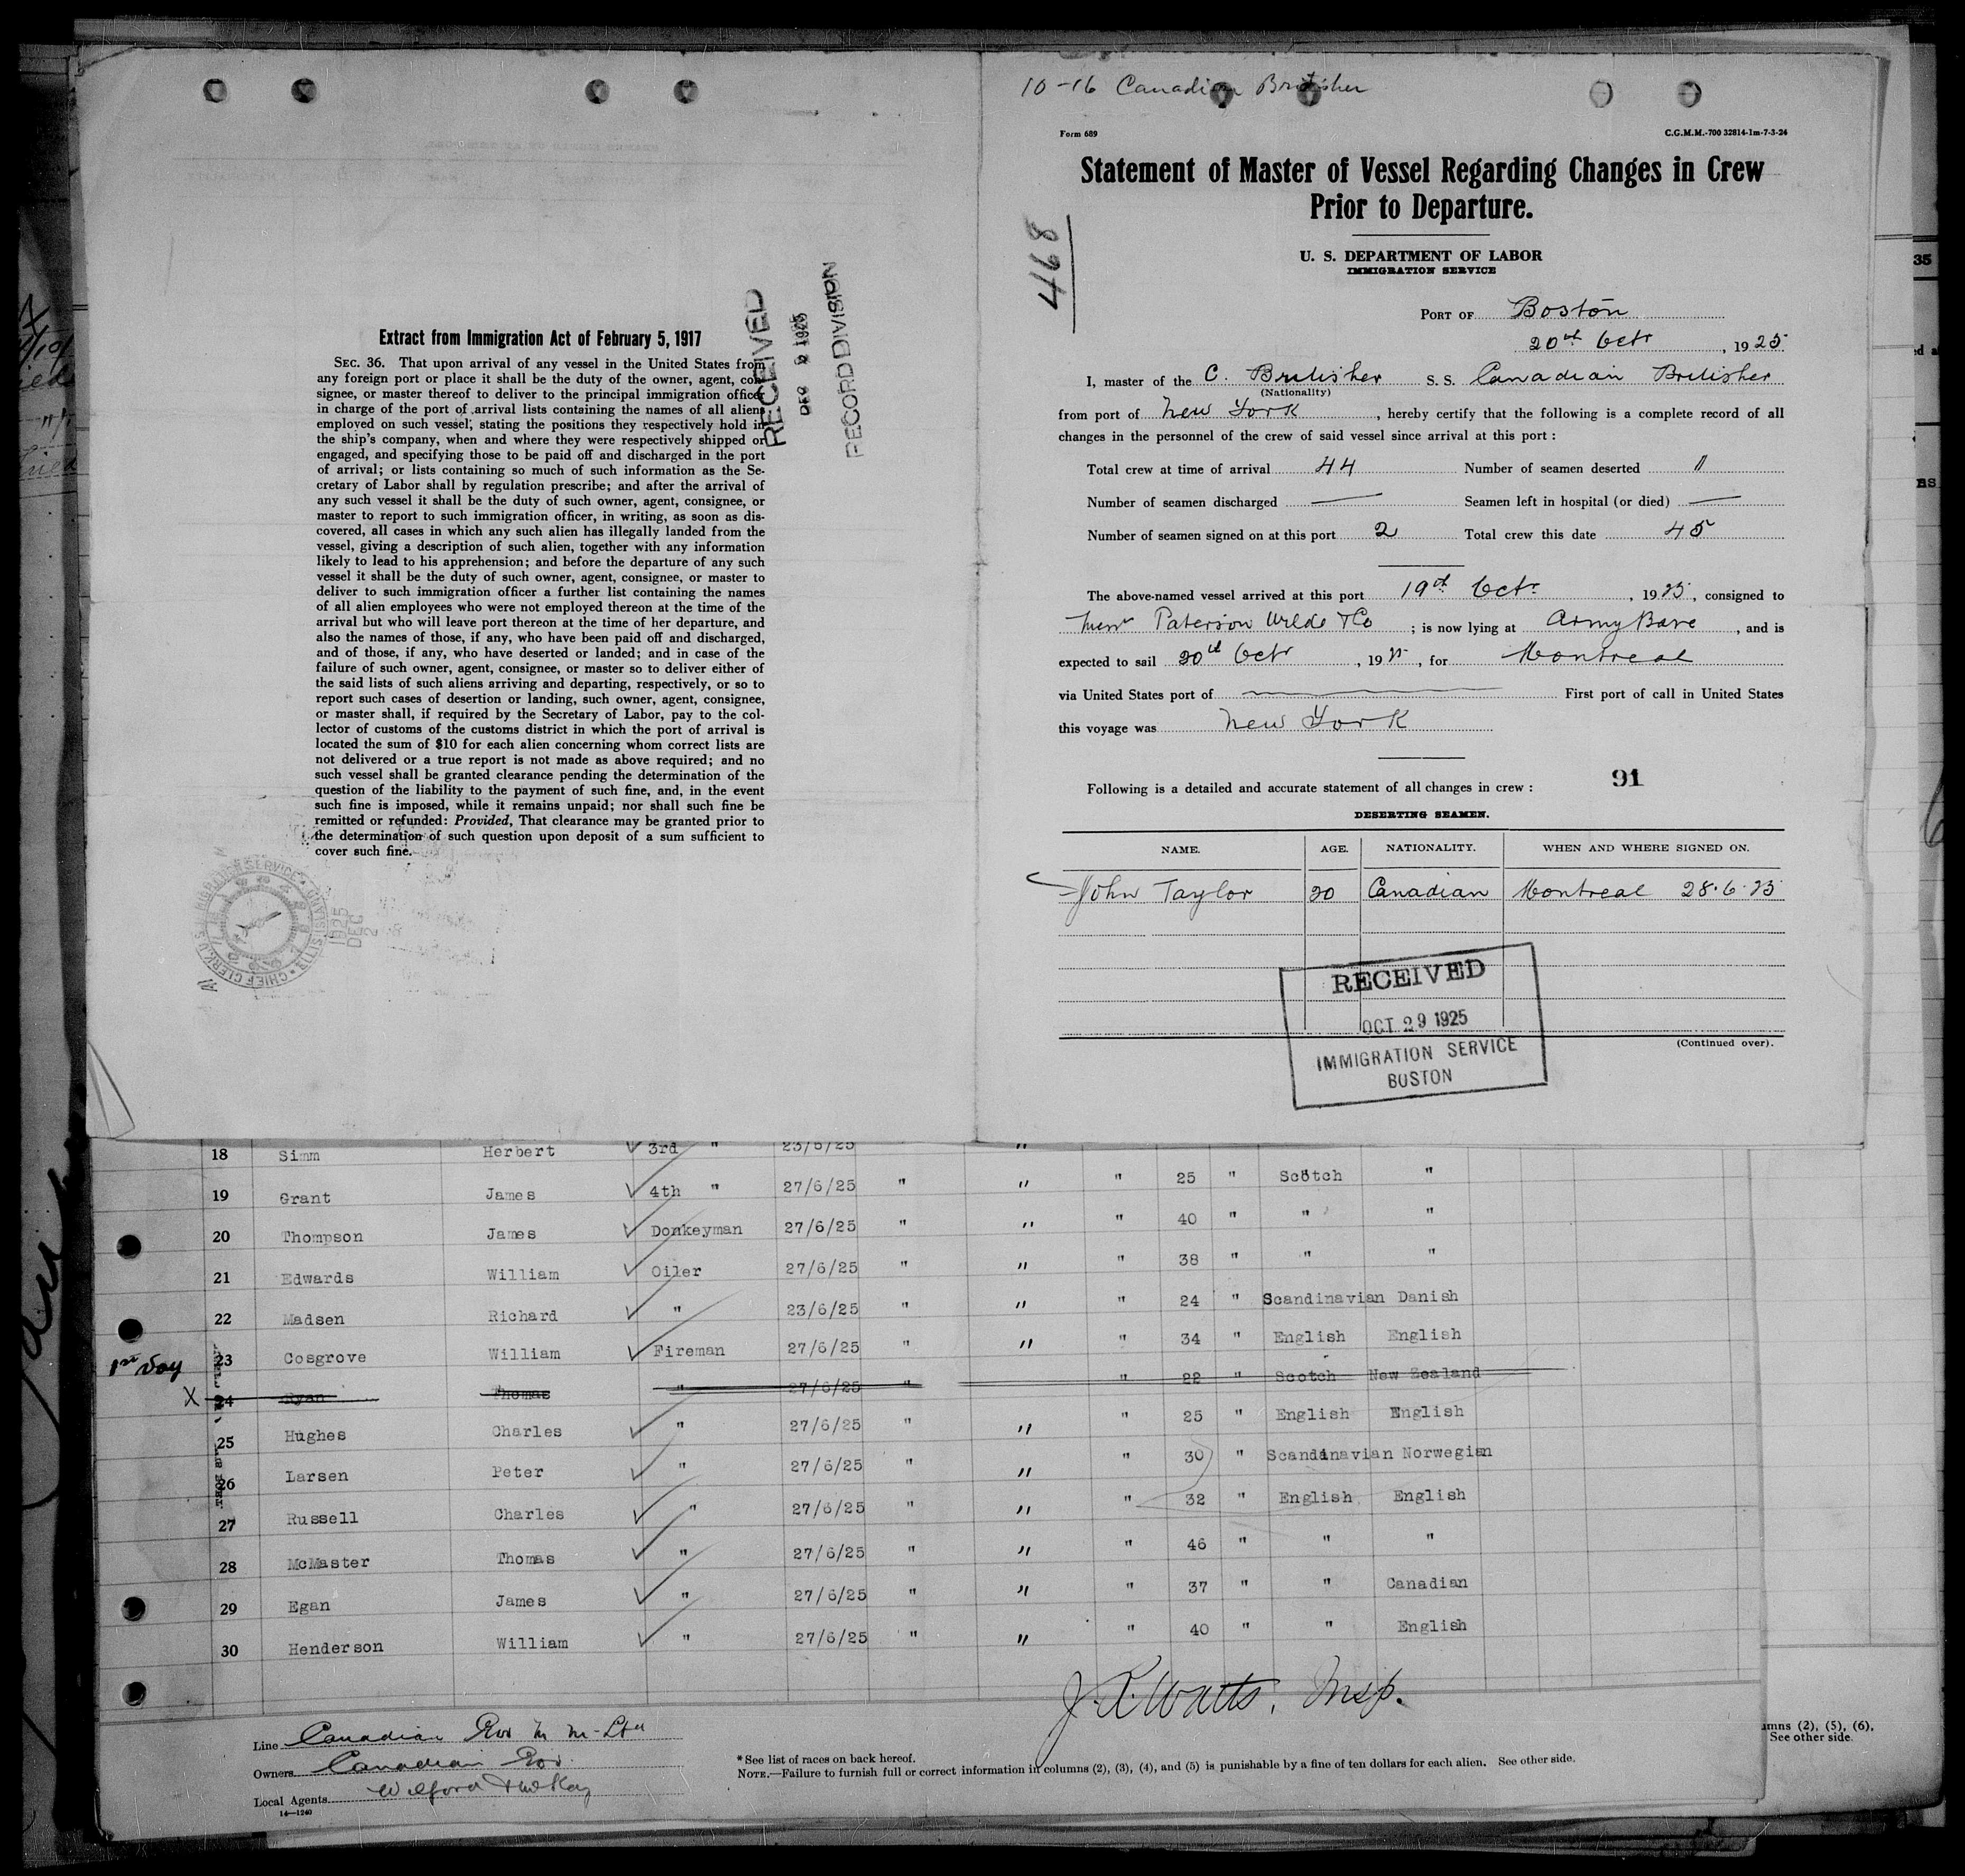 Extract from Immigration Act of February 5, 1917
SEC. 36. That upon arrival of any vessel in the United States from
any foreign port or place it shall be the duty of the owner, agent, con-
signee, or master thereof to deliver to the principal immigration officer
in charge of the port of arrival lists containing the names of all aliens
employed on such vessel, stating the positions they respectively hold in
the ship's company, when and where they were respectively shipped or
engaged, and specifying those to be paid off and discharged in the port
of arrival; or lists containing so much of such information as the Se-
cretary of Labor shall by regulation prescribe; and after the arrival of
any such vessel it shall be the duty of such owner, agent, consignee, or
master to report to such immigration officer, in writing, as soon as dis-
covered, all cases in which any such alien has illegally landed from the
vessel, giving a description of such alien, together with any information
likely to lead to his apprehension; and before the departure of any such
vessel it shall be the duty of such owner, agent, consignee, or master to
deliver to such immigration officer a further list containing the names
of all alien employees who were not employed thereon at the time of the
arrival but who will leave port thereon at the time of her departure, and
also the names of those, if any, who have been paid off and discharged,
and of those, if any, who have deserted or landed; and in case of the
failure of such owner, agent, consignee, or master so to deliver either of
the said lists of such aliens arriving and departing, respectively, or so to
report such cases of desertion or landing, such owner, agent, consignee,
or master shall, if required by the Secretary of Labor, pay to the col-
lector of customs of the customs district in which the port of arrival is
located the sum of $10 for each alien concerning whom correct lists are
not delivered or a true report is not made as above required; and no
such vessel shall be granted clearance pending the determination of the
question of the liability to the payment of such fine, and, in the event
such fine is imposed, while it remains unpaid; nor shall such fine be
remitted or refunded: Provided, That clearance may be granted prior to
the determination of such question upon deposit of a sum sufficient to
cover such fine.
RECEIVED
DEC 2 1925
RECORD DIVISION
1925
DEC
2
10-16 Canadian Britisher
Form 689
C.G.M.M.-700 32814-1m-7-3-24
Statement of Master of Vessel Regarding Changes in Crew
Prior to Departure.
468
U. S. DEPARTMENT OF LABOR
IMMIGRATION SERVICE
PORT OF Boston
20th Octr, 1925
I, master of the C. Britisher S. S. Canadian Britisher
(Nationality)
from port of New York, hereby certify that the following is a complete record of all
changes in the personnel of the crew of said vessel since arrival at this port :
Total crew at time of arrival 44 Number of seamen deserted 1
Number of seamen discharged — Seamen left in hospital (or died) —
Number of seamen signed on at this port 2 Total crew this date 45
The above-named vessel arrived at this port 19th Octr, 1925, consigned to
Messrs Paterson Wilde & Co ; is now lying at Army Base, and is
expected to sail 20th Octr, 1925, for Montreal
via United States port of — First port of call in United States
this voyage was New York
Following is a detailed and accurate statement of all changes in crew :
91
DESERTING SEAMEN.
NAME. AGE. NATIONALITY. WHEN AND WHERE SIGNED ON.
John Taylor 20 Canadian Montreal 28·6·25
RECEIVED
OCT 29 1925
IMMIGRATION SERVICE
BOSTON
(Continued over).
18 Simm Herbert 3rd " 23/6/25 "
19 Grant James 4th " 27/6/25 " " " 25 " Scotch "
20 Thompson James Donkeyman 27/6/25 " " " 40 " " "
21 Edwards William Oiler 27/6/25 " " " 38 " " "
22 Madsen Richard " 23/6/25 " " " 24 " Scandinavian Danish
1st Voy
23 Cosgrove William Fireman 27/6/25 " " " 34 " English English
X 24 Ryan Thomas " 27/6/25 " " 22 " Scotch New Zealand
25 Hughes Charles " 27/6/25 " " " 25 " English English
26 Larsen Peter " 27/6/25 " " " 30 " Scandinavian Norwegian
27 Russell Charles " 27/6/25 " " " 32 " English English
28 McMaster Thomas " 27/6/25 " " " 46 " " "
29 Egan James " 27/6/25 " " " 37 " " Canadian
30 Henderson William " 27/6/25 " " " 40 " " English
J. K. Watts, Insp.
Line Canadian Gov M M Ltd
Owners Canadian Gov.
Local Agents Wilford & McKay
14—1240
* See list of races on back hereof.
NOTE.—Failure to furnish full or correct information in columns (2), (3), (4), and (5) is punishable by a fine of ten dollars for each alien. See other side.
umns (2), (5), (6),
See other side.
35